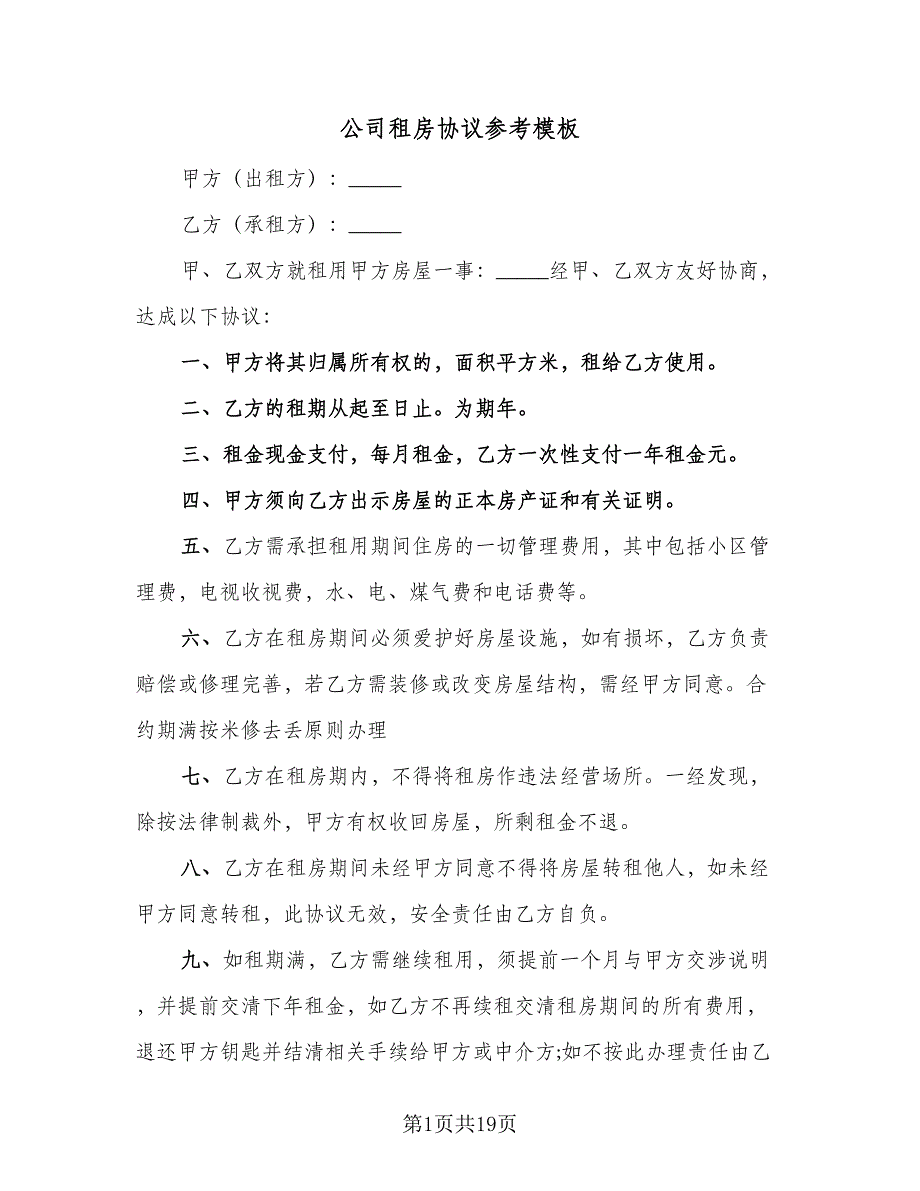 公司租房协议参考模板
甲方（出租方）：_____
乙方（承租方）：_____
甲、乙双方就租用甲方房屋一事：_____经甲、乙双方友好协商，
达成以下协议：
一、甲方将其归属所有权的，面积平方米，租给乙方使用。
二、乙方的租期从起至日止。为期年。
三、租金现金支付，每月租金，乙方一次性支付一年租金元。
四、甲方须向乙方出示房屋的正本房产证和有关证明。
五、乙方需承担租用期间住房的一切管理费用，其中包括小区管
理费，电视收视费，水、电、煤气费和电话费等。
六、乙方在租房期间必须爱护好房屋设施，如有损坏，乙方负责
赔偿或修理完善，若乙方需装修或改变房屋结构，需经甲方同意。合
约期满按米修去丢原则办理
七、乙方在租房期内，不得将租房作违法经营场所。一经发现，
除按法律制裁外，甲方有权收回房屋，所剩租金不退。
八、乙方在租房期间未经甲方同意不得将房屋转租他人，如未经
甲方同意转租，此协议无效，安全责任由乙方自负。
九、如租期满，乙方需继续租用，须提前一个月与甲方交涉说明
，并提前交清下年租金，如乙方不再续租交清租房期间的所有费用，
退还甲方钥匙并结清相关手续给甲方或中介方;如不按此办理责任由乙
第1页共19页